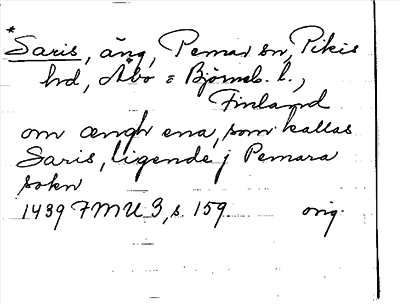 *
Saris, äng, Pemar sn, Pikis
hd, Åbo = Björneb. l.,
Finland
om ængh ena, som kallas
Saris, ligende j Pemara
sokn
1439 FMU 3, s. 159. orig.